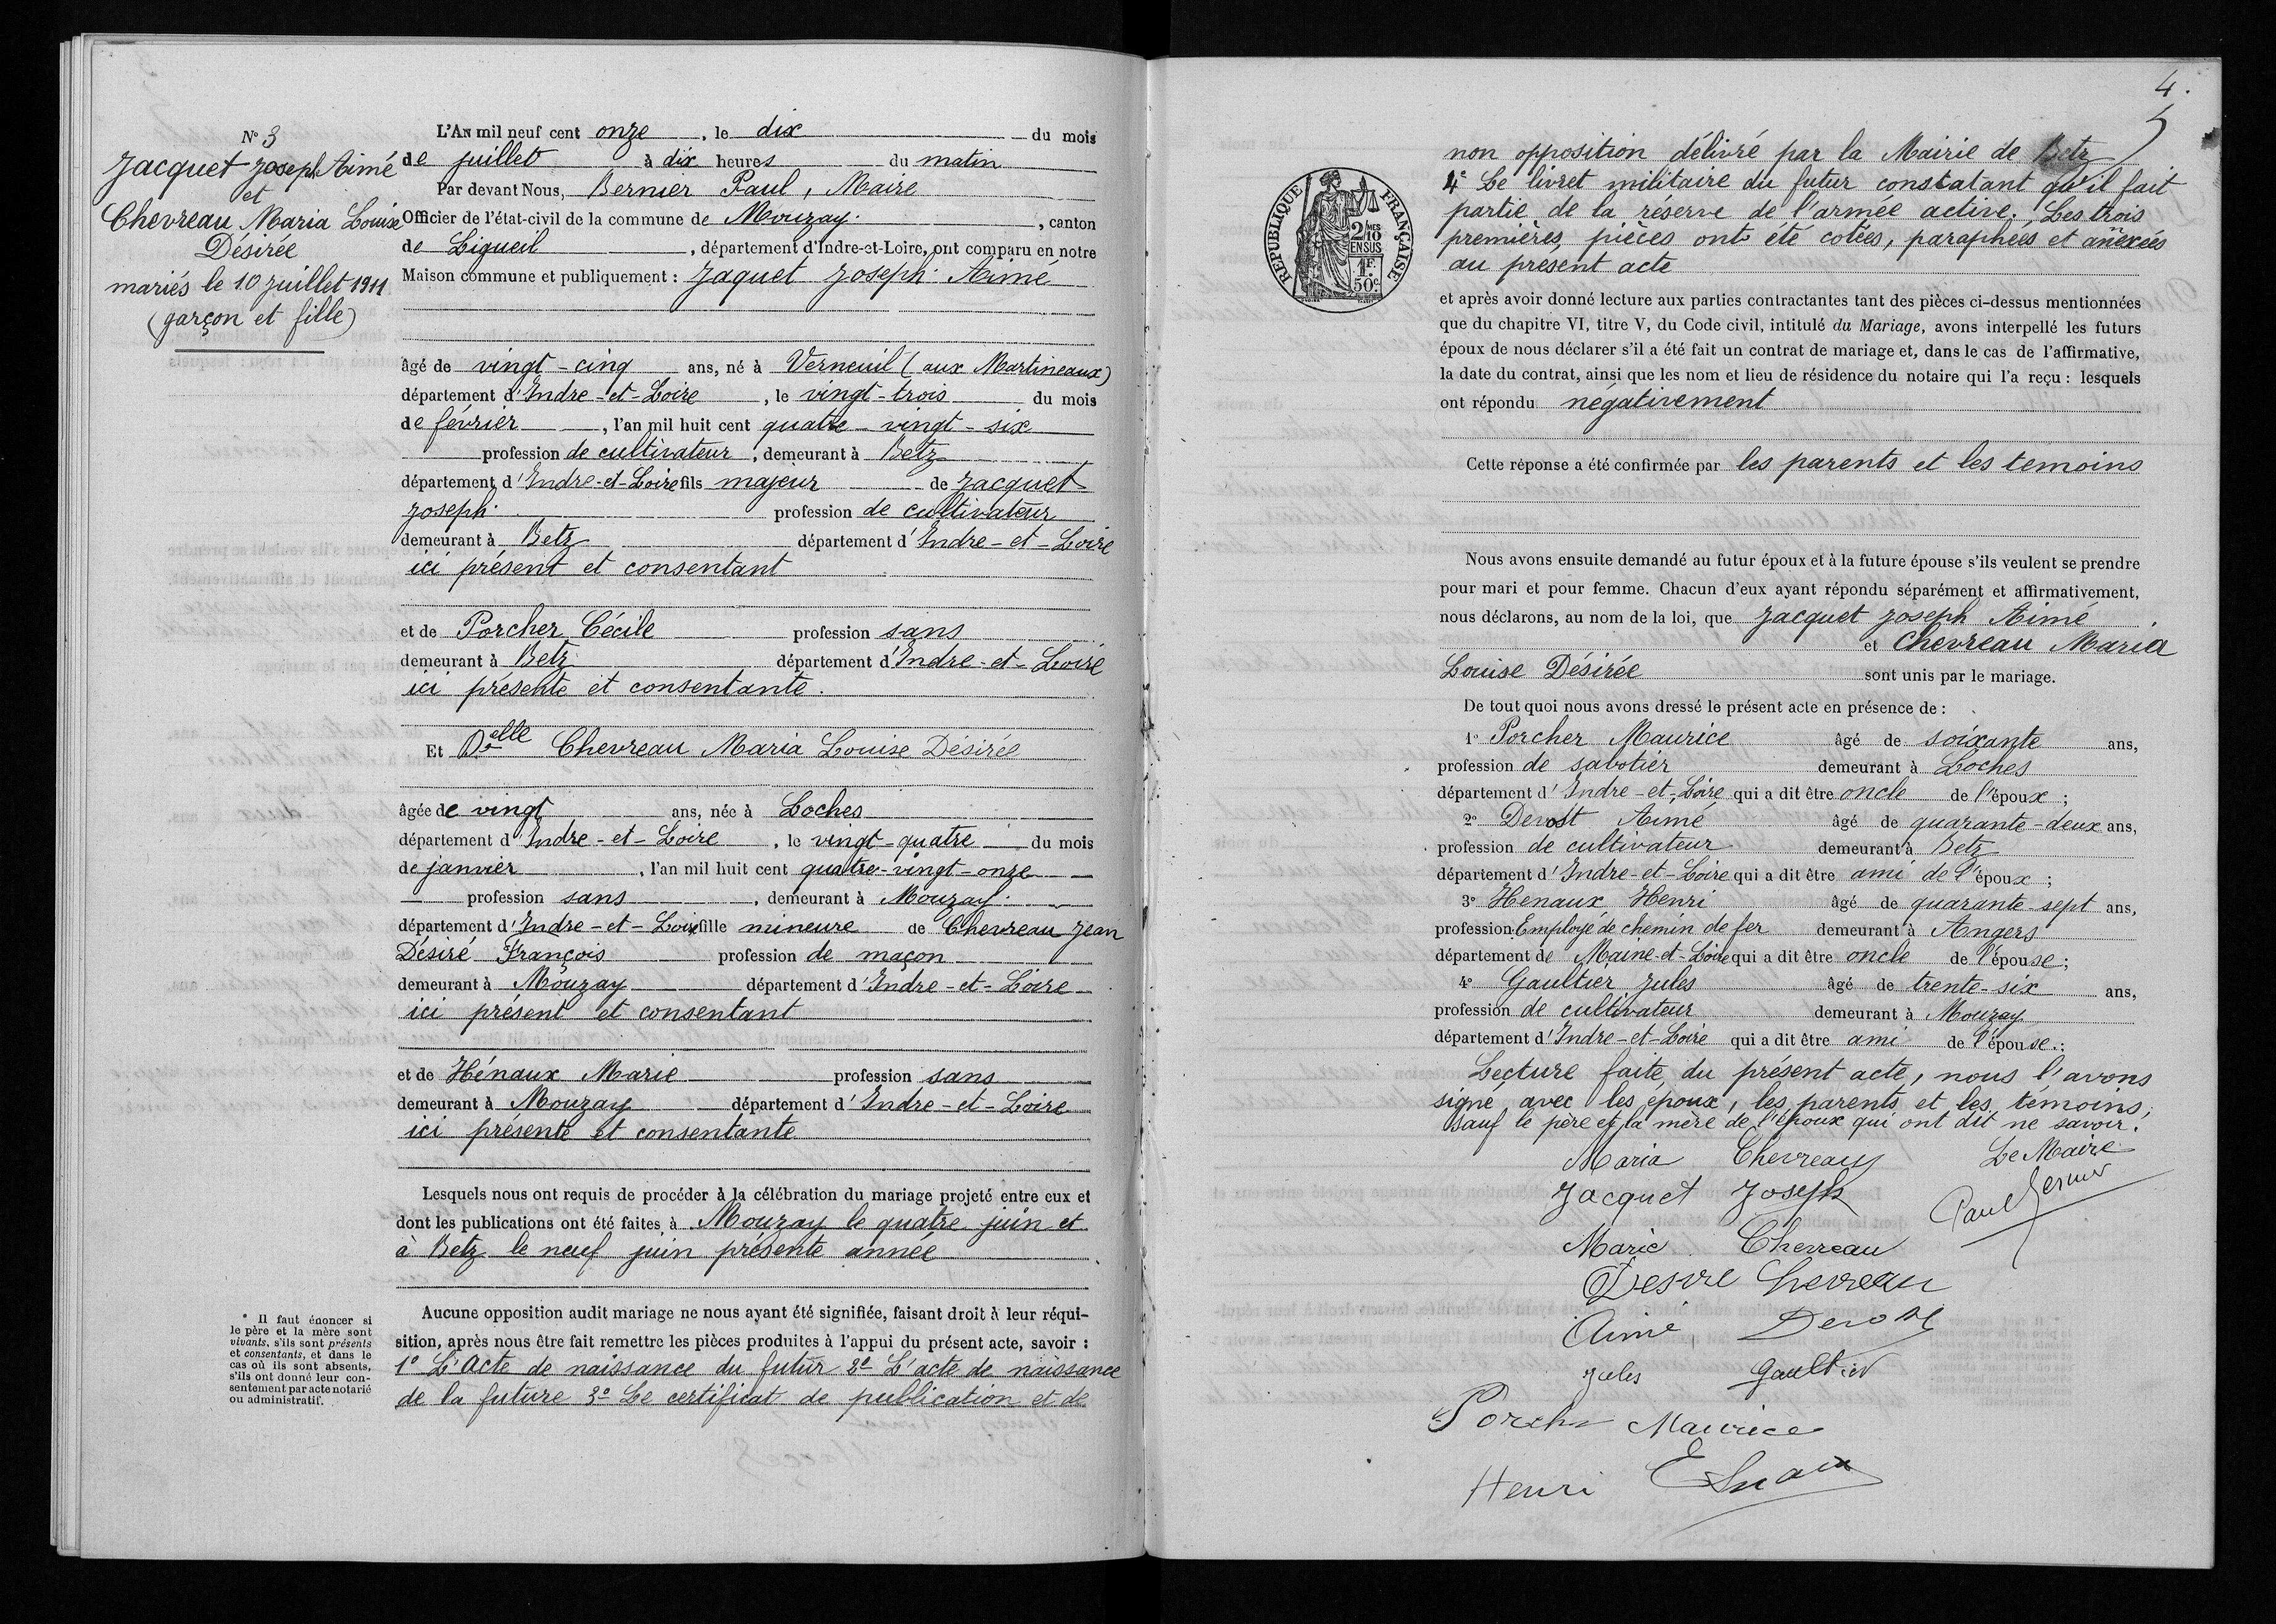 N° 3
Jacquet Joseph Aimé
et
Chevreau Maria Louise
Désirée
mariés le 10 juillet 1911
(garçon et fille)
L'AN mil neuf cent onze, le dix du mois
de juillet à dix heures du matin
Par devant Nous, Bernier Paul, Maire
Officier de l'état-civil de la commune de Mouzay, canton
de Ligueil, département d'Indre-et-Loire, ont comparu en notre
Maison commune et publiquement : Jaquet Joseph Aimé
âgé de vingt-cinq ans, né à Verneuil (aux Martineaux)
département d'Indre-et-Loire, le vingt-trois du mois
de février, l'an mil huit cent quatre-vingt-six
profession de cultivateur, demeurant à Betz
département d'Indre-et-Loire fils majeur de Jacquet
Joseph profession de cultivateur
demeurant à Betz département d'Indre-et-Loire
ici présent et consentant
et de Porcher Cécile profession sans
demeurant à Betz département d'Indre-et-Loire
ici présente et consentante.
Et Delle Chevreau Maria Louise Désirée
âgée de vingt ans, née à Loches
département d'Indre-et-Loire, le vingt-quatre du mois
de janvier, l'an mil huit cent quatre-vingt-onze
profession sans, demeurant à Mouzay
département d'Indre-et-Loire fille mineure de Chevreau Jean
Désiré François profession de maçon
demeurant à Mouzay département d'Indre-et-Loire
ici présent et consentant
et de Hénaux Marie profession sans
demeurant à Mouzay département d'Indre-et-Loire
ici présente et consentante
Lesquels nous ont requis de procéder à la célébration du mariage projeté entre eux et
dont les publications ont été faites à Mouzay le quatre juin et
à Betz le neuf juin présente année
* Il faut énoncer si
le père et la mère sont
vivants, s'ils sont présents
et consentants, et dans le
cas où ils sont absents,
s'ils ont donné leur con-
sentement par acte notarié
ou administratif.
Aucune opposition audit mariage ne nous ayant été signifiée, faisant droit à leur réqui-
sition, après nous être fait remettre les pièces produites à l'appui du présent acte, savoir :
1° L'Acte de naissance du futur 2° L'acte de naissance
de la future 3° Le certificat de publication et de
4.
RÉPUBLIQUE FRANÇAISE
2/10 MES
EN SUS
1F.
50c.
non opposition délivré par la Mairie de Betz
4° Le livret militaire du futur constatant qu'il fait
partie de la réserve de l'armée active. Les trois
premières pièces ont été cotées, paraphées et annexées
au présent acte
et après avoir donné lecture aux parties contractantes tant des pièces ci-dessus mentionnées
que du chapitre VI, titre V, du Code civil, intitulé du Mariage, avons interpellé les futurs
époux de nous déclarer s'il a été fait un contrat de mariage et, dans le cas de l'affirmative,
la date du contrat, ainsi que les nom et lieu de résidence du notaire qui l'a reçu : lesquels
ont répondu négativement
Cette réponse a été confirmée par les parents et les temoins
Nous avons ensuite demandé au futur époux et à la future épouse s'ils veulent se prendre
pour mari et pour femme. Chacun d'eux ayant répondu séparément et affirmativement,
nous déclarons, au nom de la loi, que Jacquet Joseph Aimé
et Chevreau Maria
Louise Désirée sont unis par le mariage.
De tout quoi nous avons dressé le présent acte en présence de :
1° Porcher Maurice âgé de soixante ans,
profession de sabotier demeurant à Loches
département d'Indre-et-Loire qui a dit être oncle de l'époux ;
2° Derost Aimé âgé de quarante-deux ans,
profession de cultivateur demeurant à Betz
département d'Indre-et-Loire qui a dit être ami de l'époux ;
3° Henaux Henri âgé de quarante-sept ans,
profession Employé de chemin de fer demeurant à Angers
département de Maine-et-Loire qui a dit être oncle de l'épouse ;
4° Gaultier Jules âgé de trente-six ans,
profession de cultivateur demeurant à Mouzay
département d'Indre-et-Loire qui a dit être ami de l'épouse.
Lecture faite du présent acte, nous l'avons
signé avec les époux, les parents et les témoins,
sauf le père et la mère de l'époux qui ont dit ne savoir.
Maria Chevreau Le Maire
Jacquet Joseph Paul Bernier
Marie Chevreau
Desire Chevreau
Aimé Derost
Jules Gaultier
Porcher Maurice
Henri